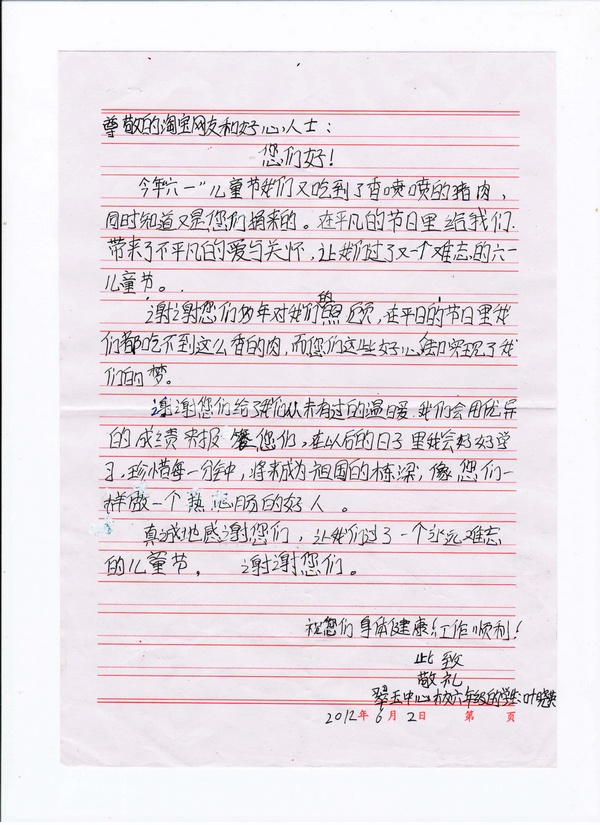 尊敬的淘宝网友和好心人士：
您们好！
今年“六一”儿童节我们又吃到了香喷喷的猪肉，
同时知道又是您们捐来的。在平凡的节日里给我们
带来了不平凡的爱与关怀，让我们过了又一个难忘的六一
儿童节。
谢谢您们多年对我们的照顾，在平日的节日里我
们都吃不到这么香的肉，而您们这些好心却实现了我
们的梦。
谢谢您们给了我们从未有过的温暖，我们会用优异
的成绩来报答您们，在以后的日子里我会好好学
习，珍惜每一分钟，将来成为祖国的栋梁，像您们一
样做一个热心肠的好人。
真诚地感谢您们，让我们过了一个永远难忘
的儿童节，谢谢您们。
祝您们身体健康，工作顺利！
此致
敬礼
翠玉中心校六年级的学生：叶晓
2012年6月2日 第 页